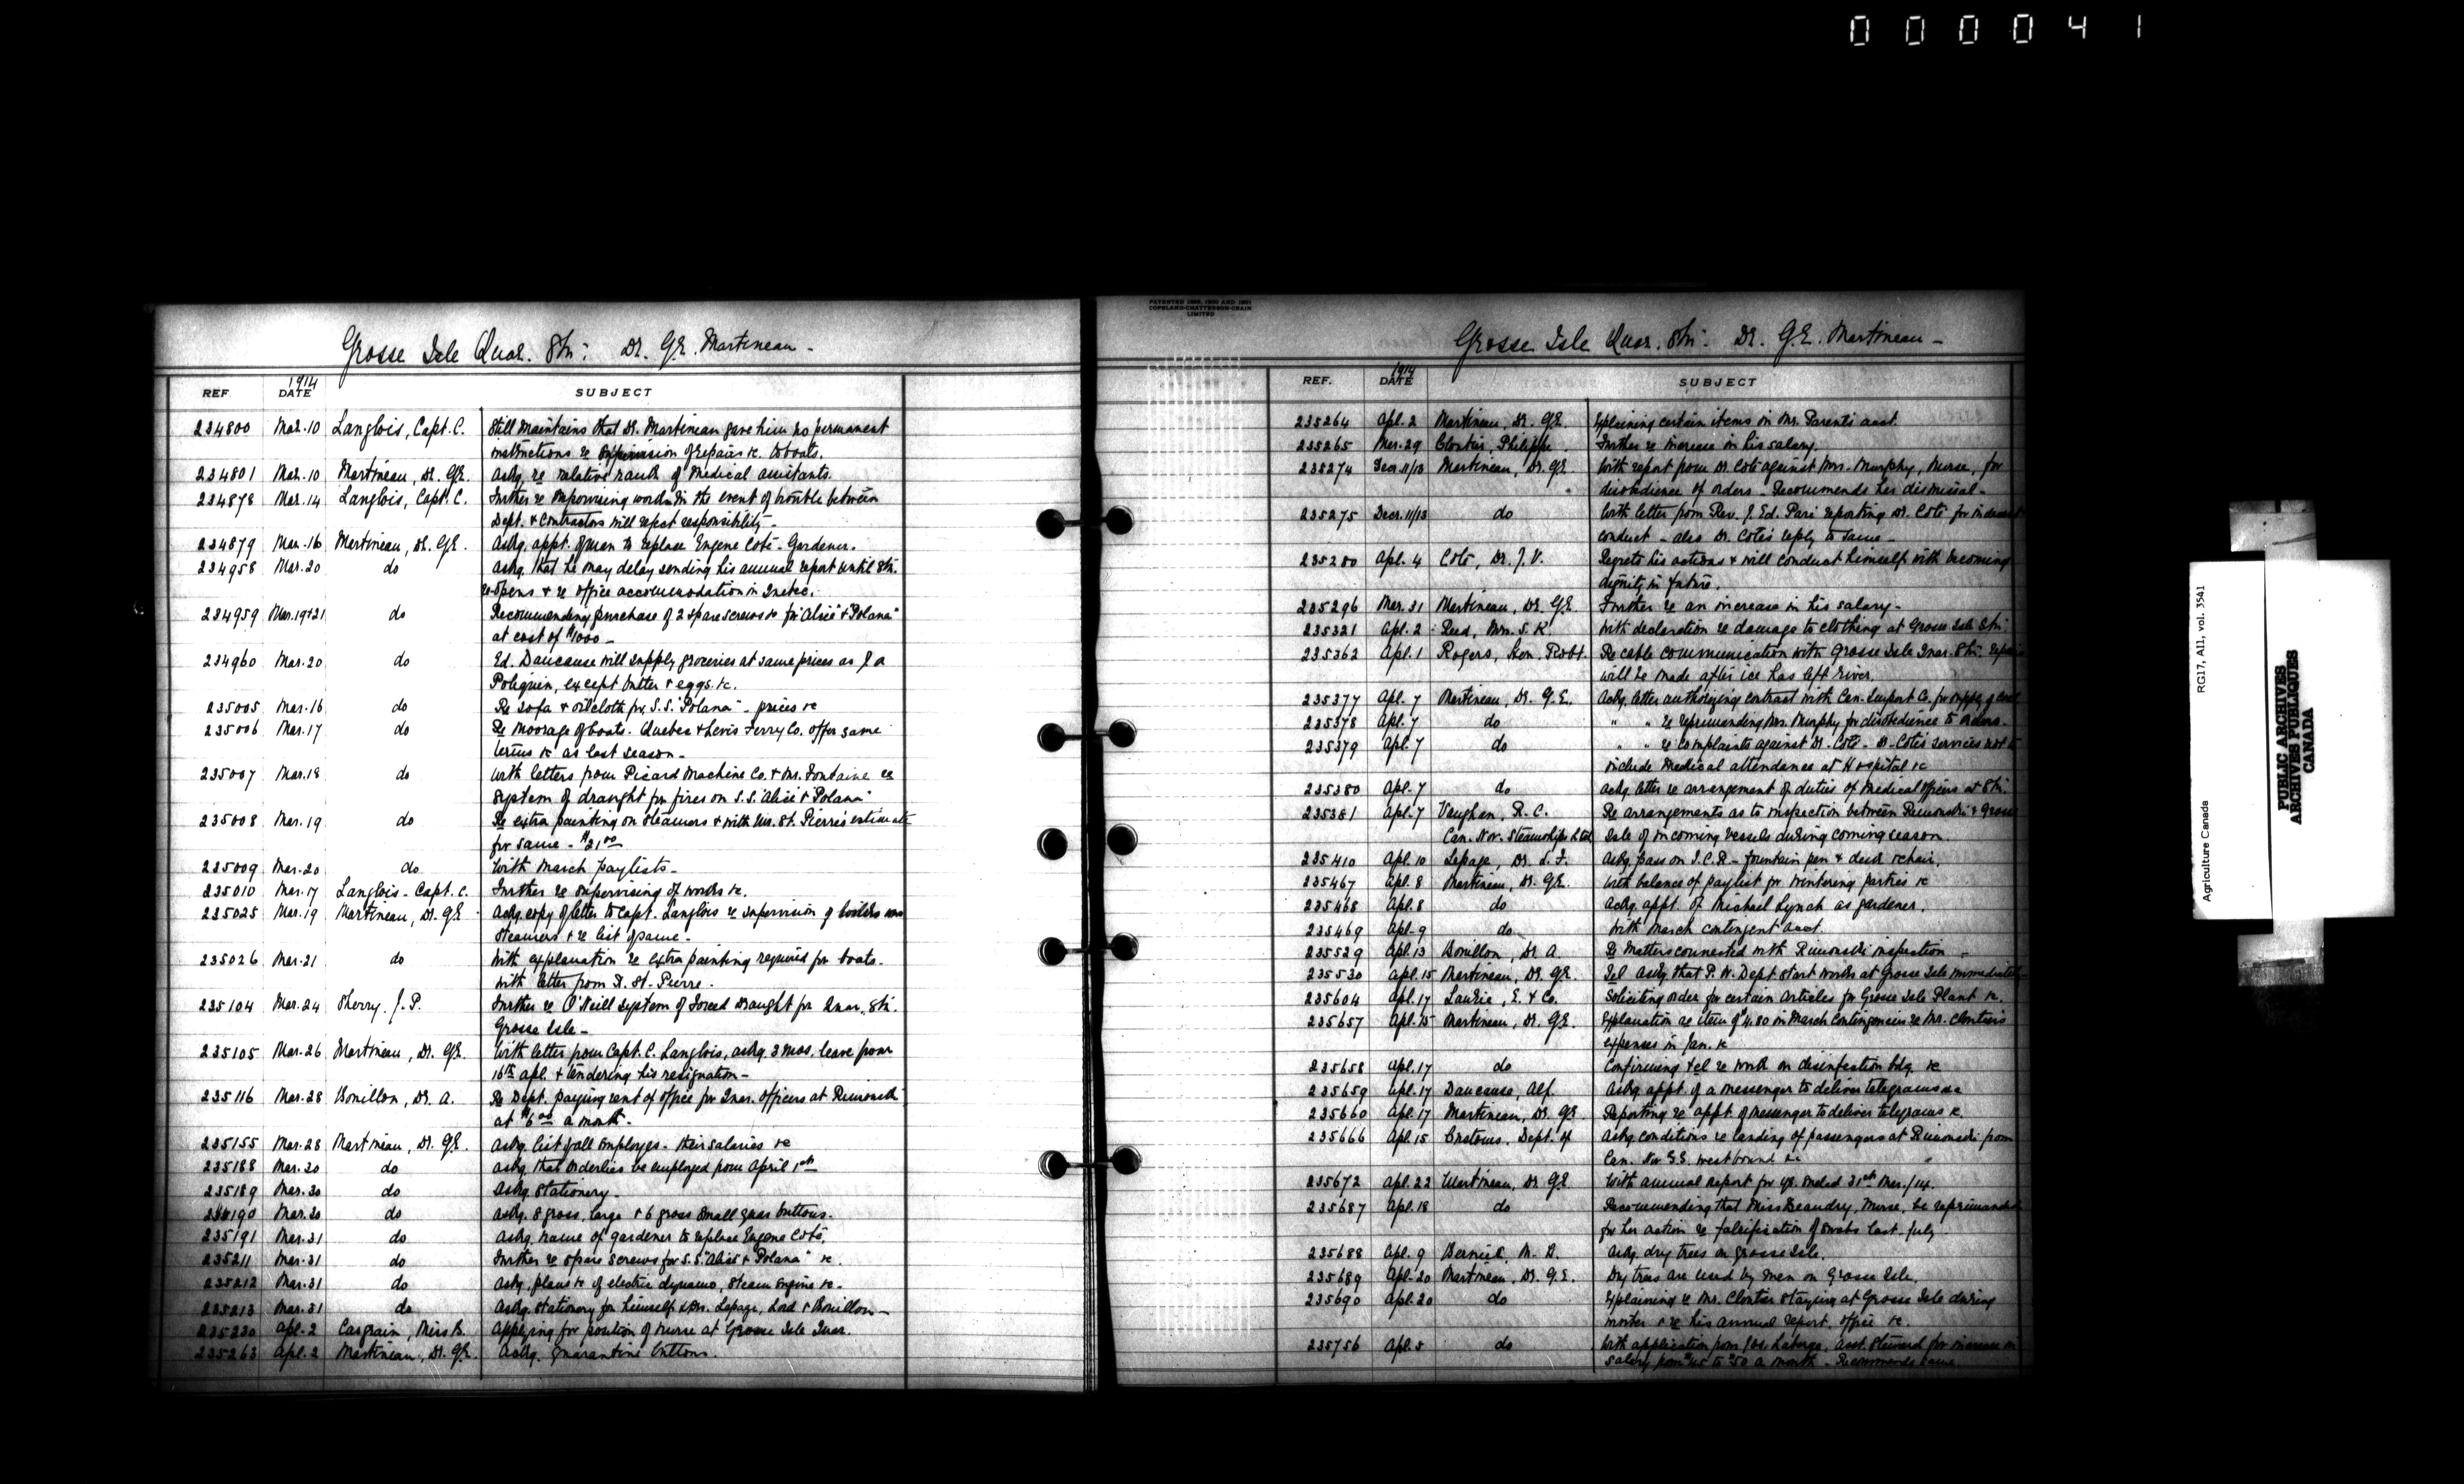 000041
Grosse Isle Quar. Stn: Dr. G.E. Martineau -
REF. 1914 DATE SUBJECT
234800 Mar. 10 Langlois, Capt. C. Still maintains that Dr. Martineau gave him no permanent
instructions re supervision of repairs &c. to boats.
234801 Mar. 10 Martineau, Dr. G.E. Ackg. re relative rank of Medical assistants.
234878 Mar. 14 Langlois, Capt. C. Further re supervising work. In the event of trouble between
Dept. & Contractors will reject responsibility -
234879 Mar. 16 Martineau, Dr. G.E. Askg. appt. of man to replace Eugene Coté - Gardener.
234958 Mar. 20 do Askg. that he may delay sending his annual report until Stn.
re-opens & re office accommodation in Quebec.
234959 Mar. 19+21 do Recommending purchase of 2 spare screws &c for "Alice" & "Polana"
at cost of $1000 -
234960 Mar. 20 do Ed. Dancause will supply groceries at same prices as
Poliquin, except butter & eggs. &c.
235005 Mar. 16 do Re Sofa & oilcloth for S.S. "Polana" - prices &c
235006 Mar. 17 do Re Moorage of boats. Quebec & Levis Ferry Co. offer same
terms &c as last season -
235007 Mar. 18 do With letters from Picard Machine Co. & Mr. Fontaine re
system of draught for fires on S.S. "Alice" & "Polana"
235008 Mar. 19 do Re extra painting on steamers & with Mr. St. Pierre's estimate
for same - $21 00
235009 Mar. 20 do With March paylists -
235010 Mar. 17 Langlois - Capt. C. Further re supervising of works &c.
235025 Mar. 19 Martineau, Dr. G.E. Ackg. copy of letter to Capt. Langlois re supervision of boilers
steamers & re list of same -
235026 Mar. 21 do With explanation re extra painting required for boats.
With letter from St. Pierre.
235104 Mar. 24 Sherry, J.P. Further re O'Neill System of Forced Draught for Quar. Stn.
Grosse Isle -
235105 Mar. 26 Martineau, Dr. G.E. With letter from Capt. C. Langlois, askg. 3 mos. leave from
16th apl. & tendering his resignation -
235116 Mar. 28 Bouillon, Dr. A. Re Dept. paying rent of office for Quar. Officers at Rimouski
at $6.00 a month -
235155 Mar. 28 Martineau, Dr. G.E. Askg. list of all Employees - their salaries &c
235188 Mar. 30 do Askg. that orderlies be employed from April 1st
235189 Mar. 30 do Askg. Stationery -
235190 Mar. 30 do Askg. 8 gross, large & 6 gross small quar buttons.
235191 Mar. 31 do Askg. name of gardener to replace Eugene Coté.
235211 Mar. 31 do Further re spare screws for S.S. "Alice" & "Polana" &c.
235212 Mar. 31 do Askg. plans &c of electric dynamo, Steam Engine &c -
235213 Mar. 31 do Askg. stationery for himself & Drs. Lepage, Lord & Bouillon -
235230 Apl. 2 Casgrain, Miss B. Applying for position of nurse at Grosse Isle Quar.
235263 Apl. 2 Martineau, Dr. G.E. Ackg. quarantine buttons.
PATENTED
COPELAND-CHATTERSON-CRAIN
LIMITED
Grosse Isle Quar. Stn: Dr. G.E. Martineau -
REF. 1914 DATE SUBJECT
235264 Apl. 2 Martineau, Dr. G.E. Explaining certain items in Mr. Parent's acct.
235265 Mar. 29 Cloutier, Philippe Further re increase in his salary.
235274 Decr. 11/13 Martineau, Dr. G.E. With report from Dr. Coté against Mrs. Murphy, Nurse, for
disobedience of orders - Recommends her dismissal -
235275 Decr. 11/13 do With letter from Rev. J. Ed. Pari reporting Dr. Coté for indecent
conduct - also Dr. Coté's reply to same -
235280 Apl. 4 Coté, Dr. J.V. Regrets his actions & will conduct himself with becoming
dignity in future.
235296 Mar. 31 Martineau, Dr. G.E. Further re an increase in his salary -
235321 Apl. 2 Reed, Mrs. S.K. With declaration re damage to clothing at Grosse Isle Stn.
235362 Apl. 1 Rogers, Hon. Robt. Re cable communication with Grosse Isle Quar. Stn.
will be made after ice has left river.
235377 Apl. 7 Martineau, Dr. G.E. Ackg. letter authorizing contract with Can. Import Co. for supply of coal
235378 Apl. 7 do " " re reprimanding Mrs. Murphy for disobedience to orders -
235379 Apl. 7 do " " re complaints against Dr. Coté - Dr. Coté's services not to
include Medical attendance at Hospital &c
235380 Apl. 7 do Ackg letter re arrangement of duties of Medical officers at Stn.
235381 Apl. 7 Vaughan, R.C. Re arrangements as to inspection between Rimouski & Grosse
Can. Nor. Steamships Ltd Isle of incoming vessels during coming season.
235410 Apl. 10 Lepage, Dr. L.F. Askg. pass on I.C.R. - fountain pen & desk & chair.
235467 Apl. 8 Martineau, Dr. G.E. With balance of paylist for Wintering parties &c
235468 Apl. 8 do Ackg. appt. of Michael Lynch as gardener.
235469 Apl. 9 do With March contingent acct.
235529 Apl. 13 Bouillon, Dr. A. Re Matters connected with Rimouski inspection -
235530 Apl. 15 Martineau, Dr. G.E. Tel. askg. that P.W. Dept. start work at Grosse Isle immediately -
235604 Apl. 17 Laurie, E. & Co. Soliciting order for certain articles for Grosse Isle Plant &c.
235657 Apl. 15 Martineau, Dr. G.E. Explanation re item of $4.80 in March Contingencies re Mr. Cloutier's
expenses in Jan. &c
235658 Apl. 17 do Confirming tel re work on disinfection bdg. &c
235659 Apl. 17 Dancause, Alf. Askg appt. of a messenger to deliver telegrams &c
235660 Apl. 17 Martineau, Dr. G.E. Reporting re appt. of Messenger to deliver telegrams &c.
235666 Apl. 15 Customs, Dept. of Askg conditions re landing of passengers at Rimouski from
Can. Nor S.S. westbound &c
235672 Apl. 22 Martineau, Dr. G.E. With annual report for yr. ended 31st Mar./14.
235687 Apl. 18 do Recommending that Miss Beaudry, Nurse, be reprimanded
for her action re falsification of swabs last July.
235688 Apl. 9 M. D. Askg. dry trees on Grosse Isle.
235689 Apl. 20 Martineau, Dr. G.E. Dry trees are used by men on Grosse Isle.
235690 Apl. 20 do Explaining re Mr. Cloutier staying at Grosse Isle during
winter & re his annual report, office &c.
235756 Apl. 5 do With application from Jos. Laberge, asst. Steward for increase in
salary from $45 to $50 a month - Recommends same.
Agriculture Canada RG17, AII, vol. 3541
PUBLIC ARCHIVES
ARCHIVES PUBLIQUES
CANADA